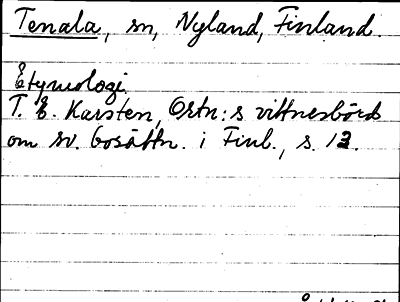 Tenala, sn, Nyland, Finland.
Etymologi
T. E. Karsten, Ortn:s vittnesbörd
om sv. bosättn. i Finl., s. 13.